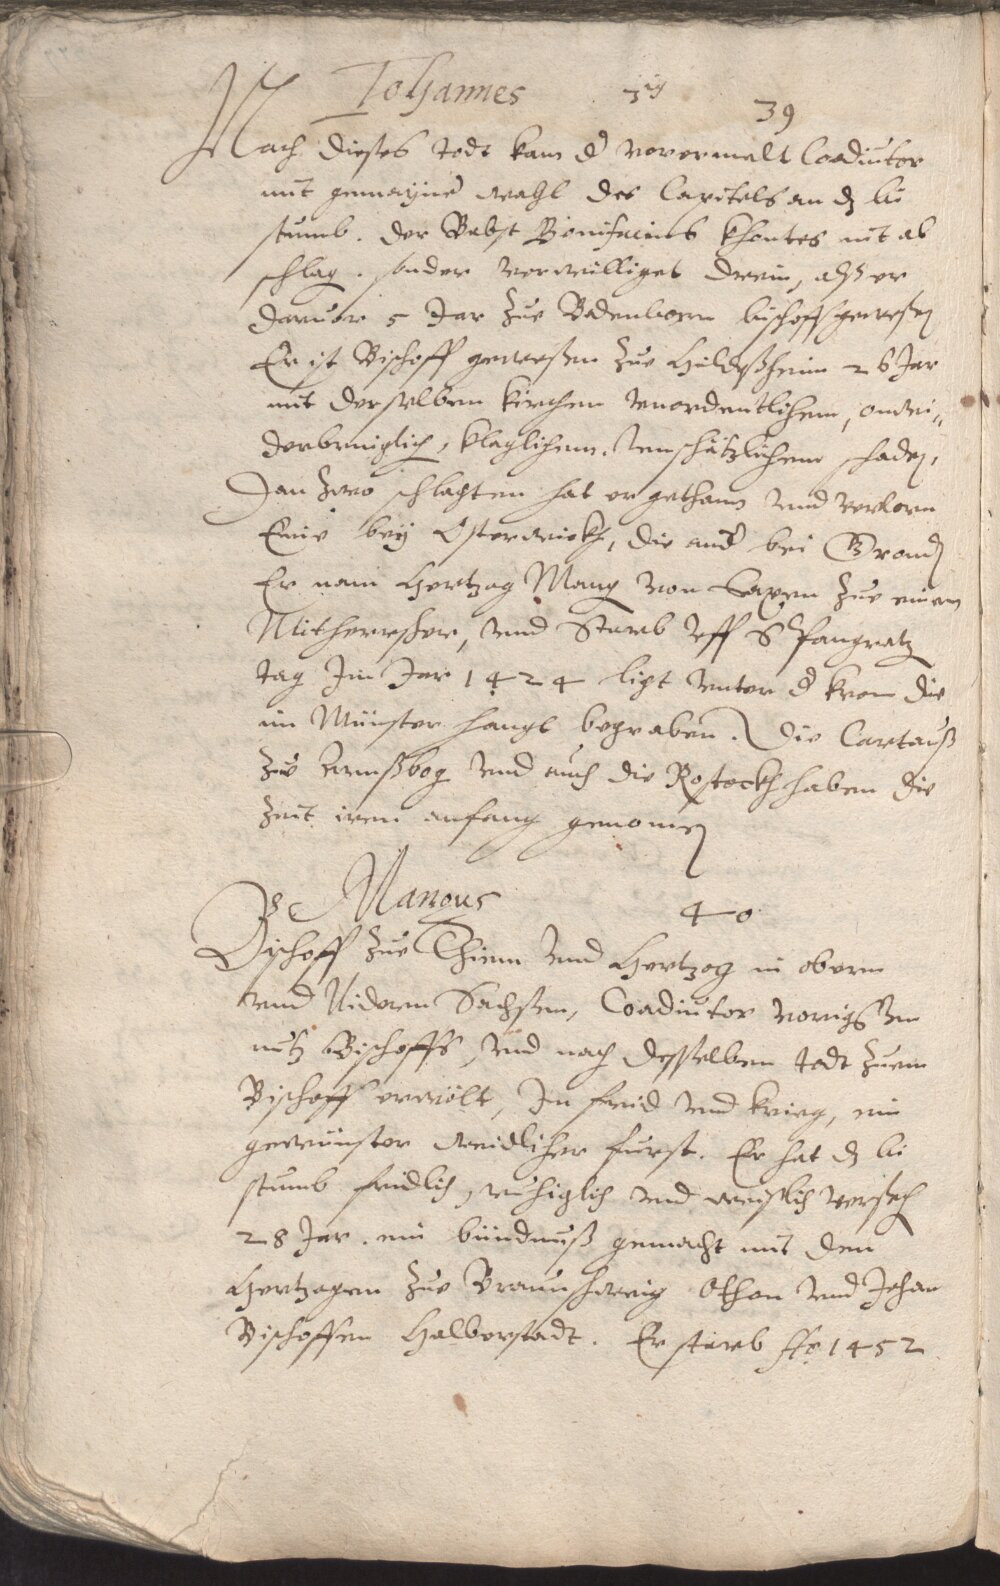 Johannes 3us 39
Nach dieses todt kam d' vorermelt Coadiutor
mit gemayner wahl des Capitels an dz bi
stumb. Der Babst Bonifacius khontes nit ab
schlag. sonder verwilliget drein, alß er
daruor 5 Jar zue Badenborn bischoff gewesen
Er ist Bischoff gewesen zue Hildeßheim 26 Jar
mit derselben kirchen vnordentlichem,
derbringlich, klaglichem. vnschätzlichem schaden,
Dan zwo schlachten hat er gethann vnd verlorn
Eine bey Osterwickh, die and' bei Grond
Er nam Hertzog Mang von Saxen zue einem
Mitherrscher, vnd Starb vff S Pangratz
tag Im Jar 1424 ligt vnter d' kron die
im Münster hangt begraben. Die Cartauß
zue vnd auch die Rostockh haben die
zeit iren anfang genomen
Mangnus 40
Bischoff zue Chiem vnd Hertzog in obern
vnd Nidern Sachssen, Coadiutor vorigs Jon
nis Bischoffs, vnd nach desselben todt zuem
Bischoff erwölt, In frid vnd krieg, ein
gewünster weidlicher furst. Er hat dz bi
stumb fridlich, ruhiglich vnd weislich versech
28 Jar. ein bündnuß gemacht mit den
Hertzogen zue Braunschweig Othon vnd Johan
Bischoffen Halberstadt. Er starb Ao 1452